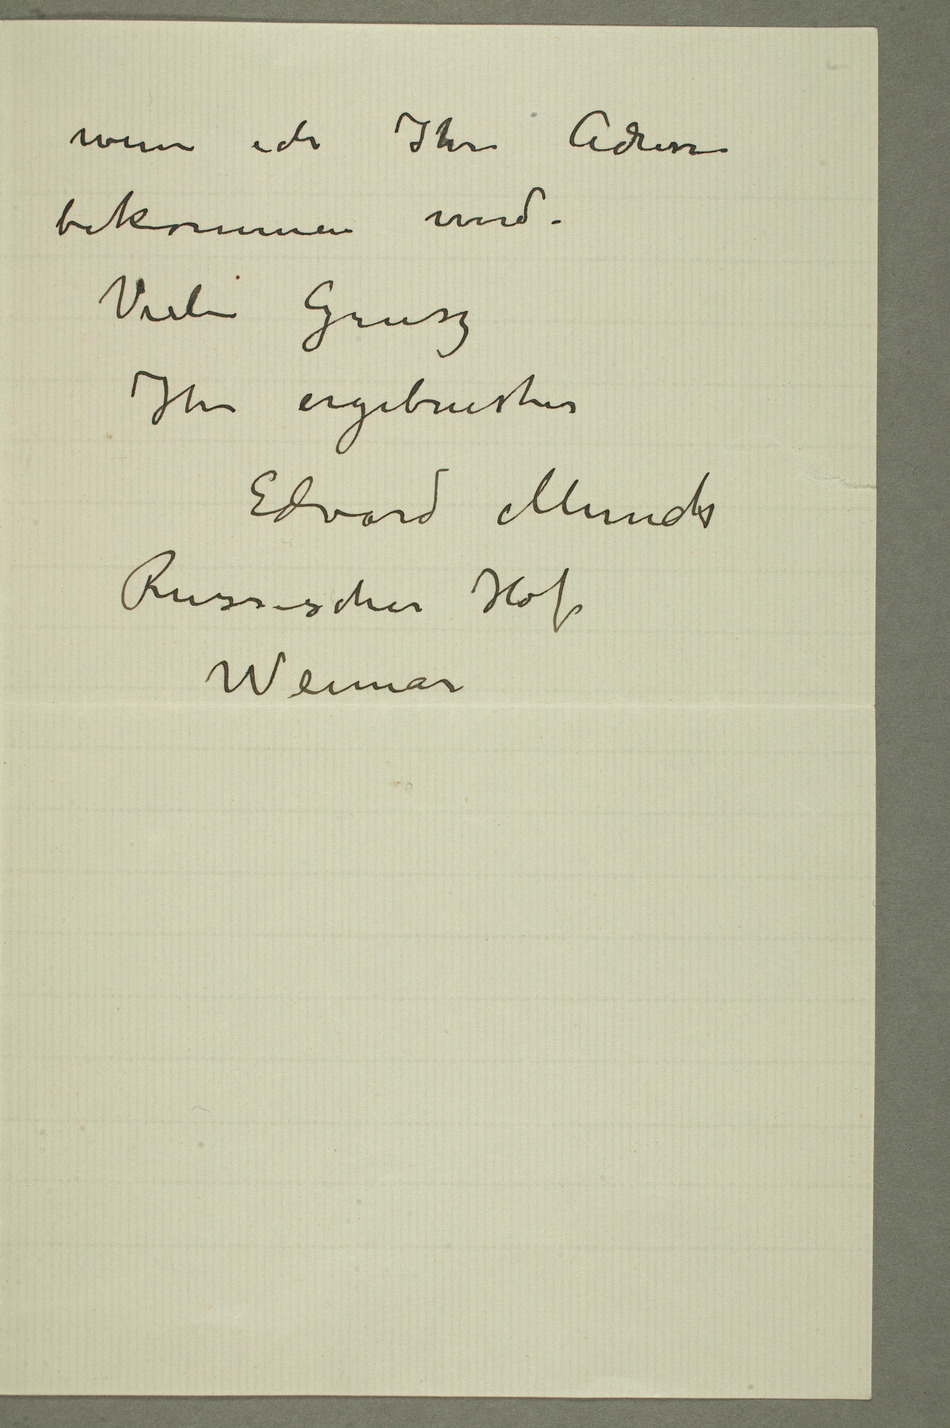 wenn ich Ihre Adresse
bekommen werde.
Viele Grusz
Ihr ergebenster
Edvard Munch
Russischer Hof
Weimar